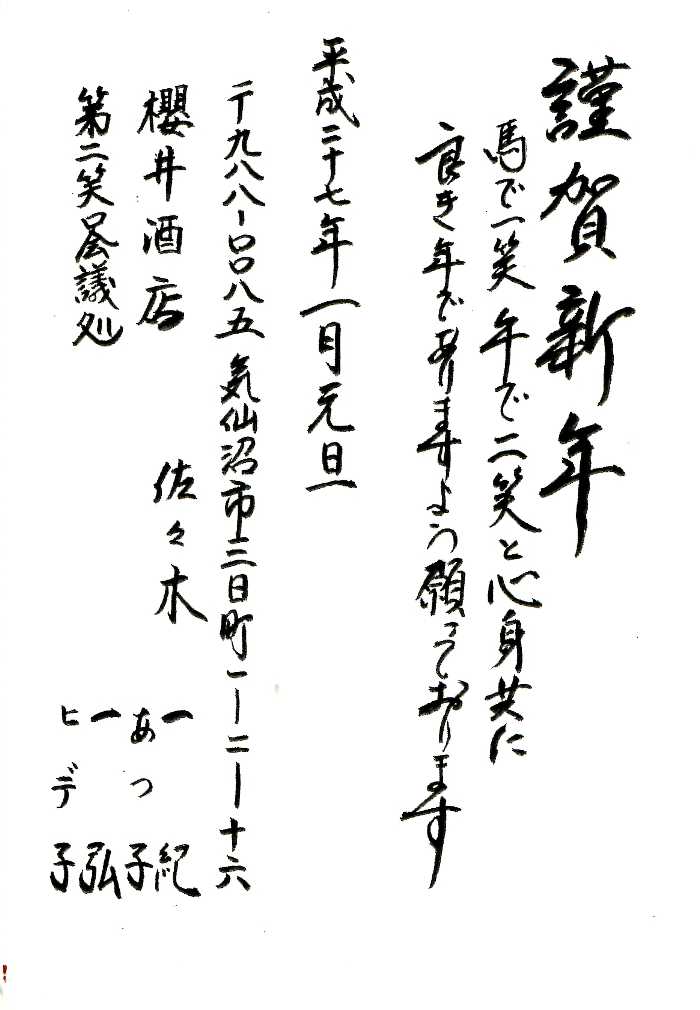 謹賀新年
馬で一笑 午で二笑と心身共に
良き年でありますよう願っております
平成二十七年一月元旦
〒九八八-〇〇八五 気仙沼市三日町一-二-十六
櫻井酒店
第二笑会議処
佐々木
一紀
あつ子
一弘
ヒデ子